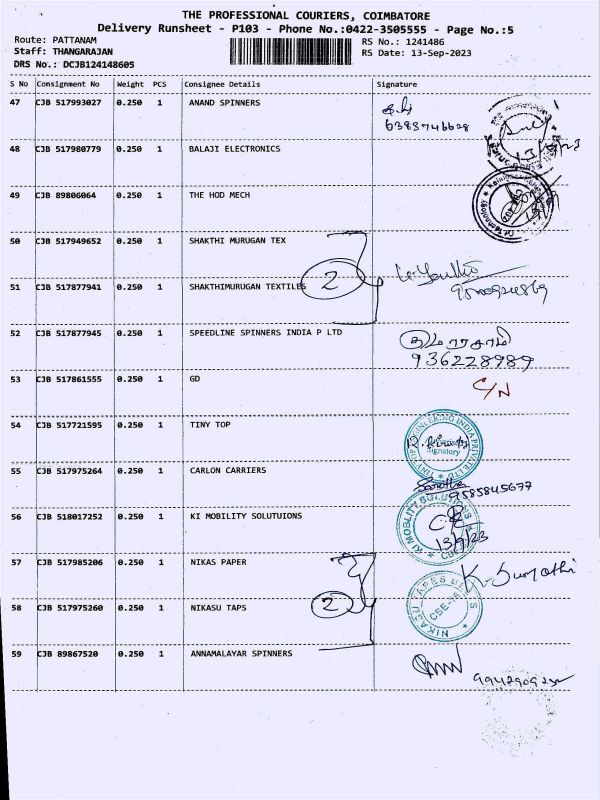 THE PROFESSIONAL COURIERS, COIMBATORE
Delivery Runsheet - P103 - Phone No.:0422-3505555 - Page No.:5
Route: PATTANAM
Staff: THANGARAJAN
DRS No.: DCJB124148605
RS No.: 1241486
RS Date: 13-Sep-2023
S No Consignment No Weight PCS Consignee Details Signature
47 CJB 517993027 0.250 1 ANAND SPINNERS
6383746628
48 CJB 517980779 0.250 1 BALAJI ELECTRONICS
49 CJB 89806064 0.250 1 THE HOD MECH
50 CJB 517949652 0.250 1 SHAKTHI MURUGAN TEX
2
51 CJB 517877941 0.250 1 SHAKTHIMURUGAN TEXTILES
52 CJB 517877945 0.250 1 SPEEDLINE SPINNERS INDIA P LTD
குமாரசாமி
936228989
53 CJB 517861555 0.250 1 GD
C/N
54 CJB 517721595 0.250 1 TINY TOP
TINY TOP ENGINEERING INDIA PRIVATE LTD
Signatory
55 CJB 517975264 0.250 1 CARLON CARRIERS
9585845677
56 CJB 518017252 0.250 1 KI MOBILITY SOLUTUIONS
KI MOBILITY SOLUTIONS
CBE
13/9/23
57 CJB 517985206 0.250 1 NIKAS PAPER
K. Sumathi
2
58 CJB 517975260 0.250 1 NIKASU TAPS
NIKASU TAPES
59 CJB 89867520 0.250 1 ANNAMALAYAR SPINNERS